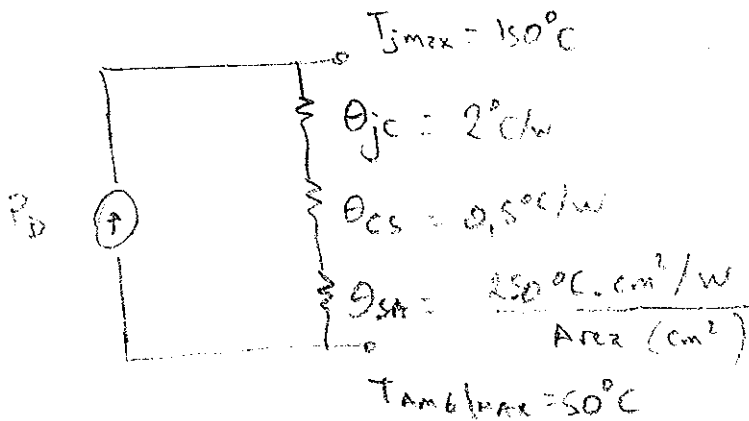 Tjmax = 150°C
θjc = 2°C/W
PD
θcs = 0,5°C/W
θSA = 250°C.cm²/W
Area (cm²)
TAMb|MAX = 50°C